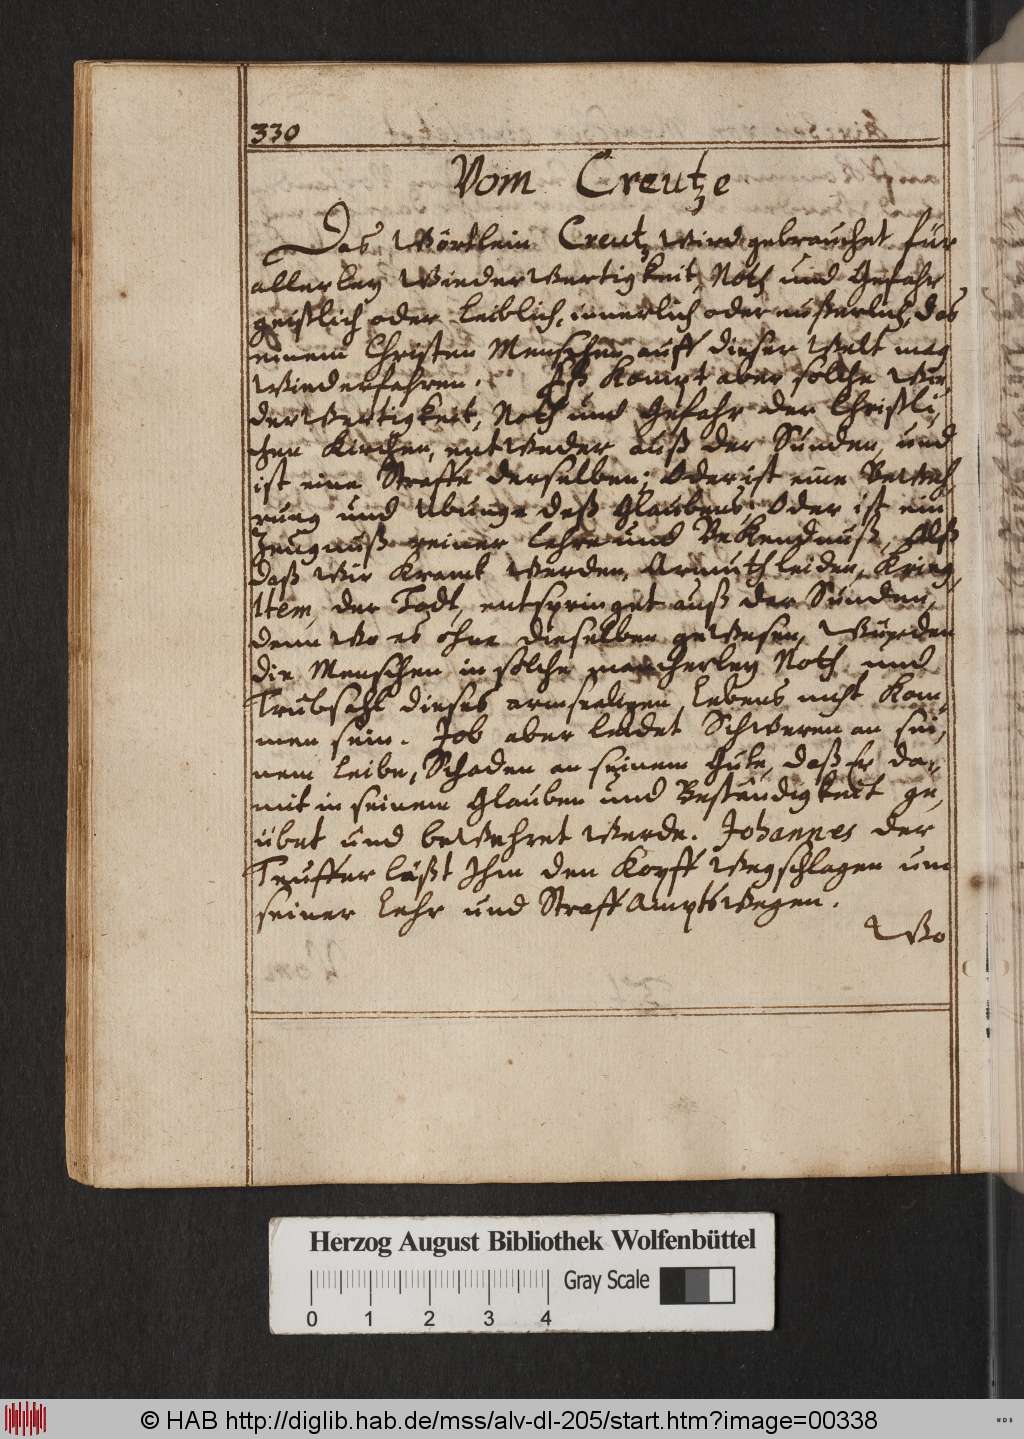 330
Vom Creutze
Das Wörtlein Creutz wird gebrauchet für
allerley Wiederwertigkeit, Noth und Gefahr
geistlich oder leiblich, innerlich oder eußerlich, das
einem Christen Menschen auff dieser Welt mag
Wiederfahren. Eß kompt aber solche Wie,
derwertigkeit, Noth und Gefahr der Christli,
chen Kirchen, entweder auß der Sünden, und
ist eine Straffe derselben; Oder ist eine Beweh,
rung und Ubunge deß Glaubens; Oder ist ein
Zeugnuß reiner Lehre und Bekendnuß, Alß
daß Wir Kranck werden, Armuth leiden, Krieg,
Item, der Todt, entspringet auß der Sünden,
denn wo es ohne dieselben gewesen, Würden
die Menschen in solche mancherley Noth und
Trübsahl dieses armseeligen Lebens nicht kom,
men sein. Job aber leidet Schweren an sei,
nem Leibe, Schaden an seinem Gute, daß Er da,
mit in seinem Glauben und Beständigkeit ge,
übet und bewehret werde. Johannes der
Teuffer läßt Ihm den Kopff wegschlagen um
seiner Lehr und Straff Ampts wegen.
Wo
Herzog August Bibliothek Wolfenbüttel
Gray Scale
0 1 2 3 4
© HAB http://diglib.hab.de/mss/alv-dl-205/start.htm?image=00338